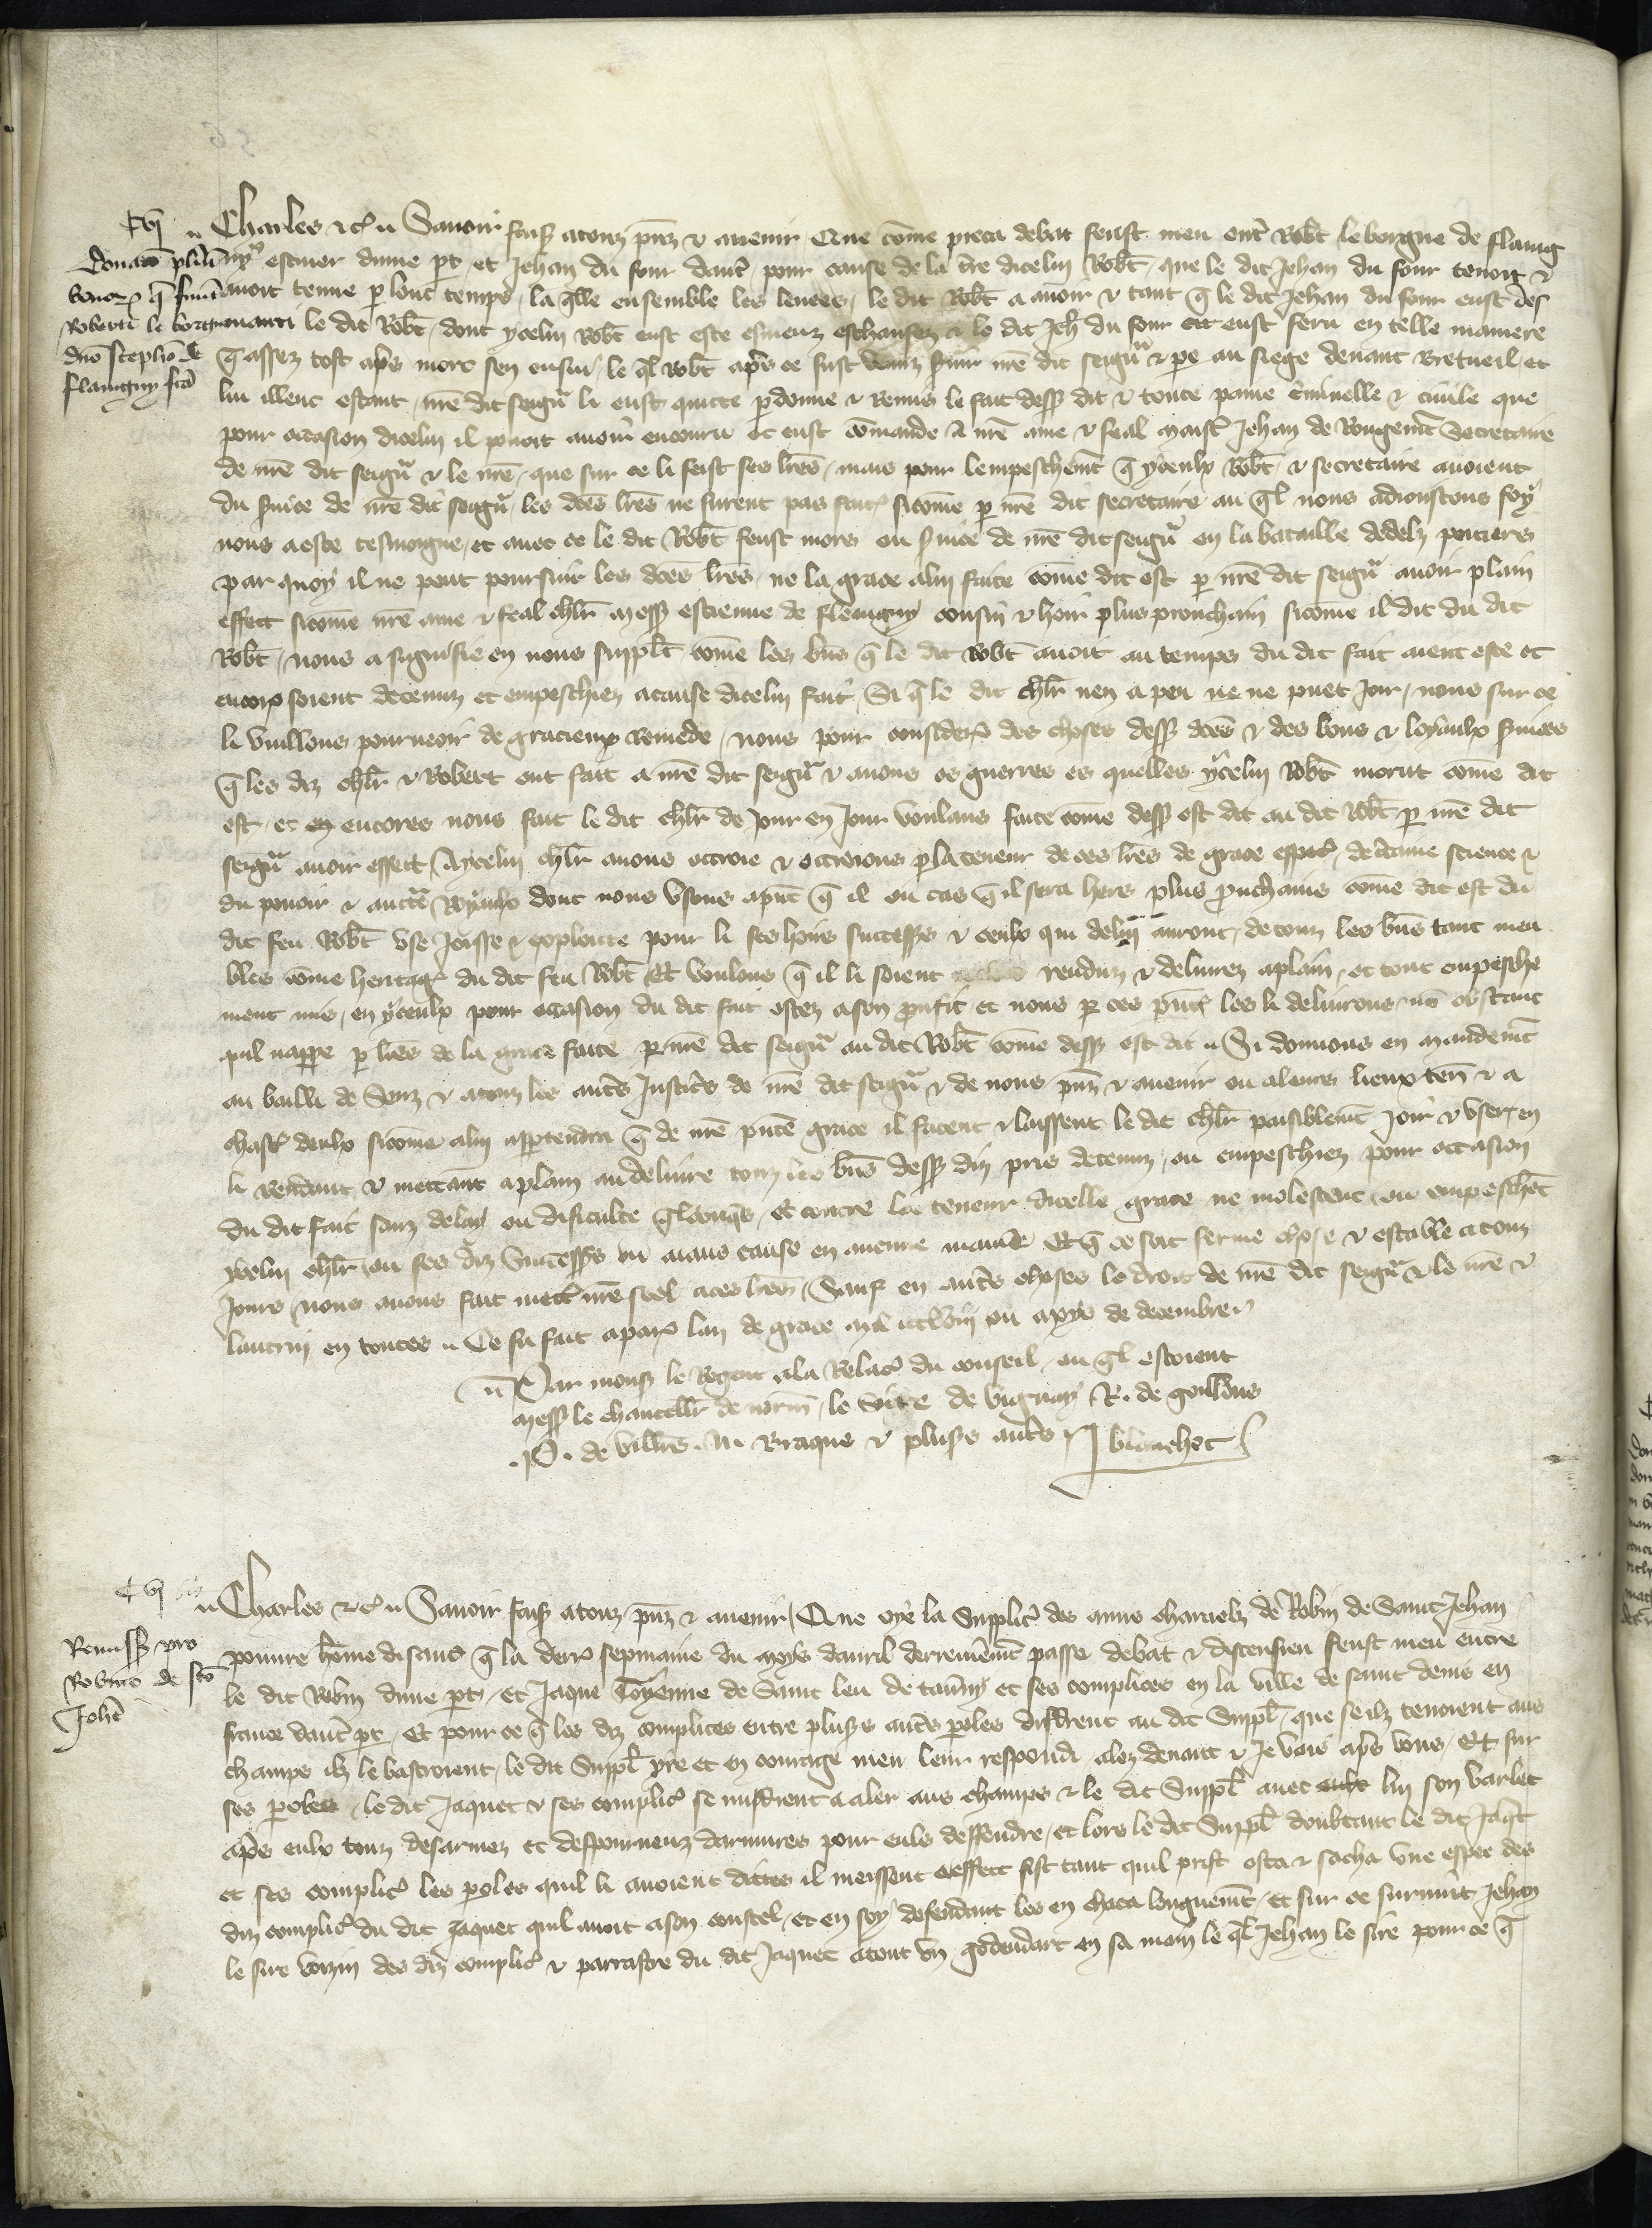 Cvj
Donacio
bonorum que fuerunt
Roberti le borgne
dno Stephano de
flauigny fca
Charles &c. Sauoir faisons a touz p̄nz & auenir Que cōme pieca debat feust meu entre Robt le borgne de flauig
ny escuier dune pt et Jehan du four dautre pour cause de la t̄re dicelui Robt que le dit Jehan du four tenoit &
auoit tenue p lonc temps la q̄lle ensemble les leuees le dit Robt a auoir & tant q̄ le dit Jehan du four eust des
menti le dit Robt dont ycelui Robt eust este esmeuz eschaufez & le dit Jeh du four eust feru en telle maniere
q̄ assez tost aps mort sen ensui le q̄l Robt aps ce fust venuz seruir nr̄e dit seigñ & pe au siege deuant Bretueil et
lui illenc estant nr̄e dit seigñ li eust quitte pdonne & remis le fait dess dit & toute paine c̄minelle & ciuile que
pour occasion dicelui il pouoit auoir encouru et eust cōmande a nr̄e ame & feal maist Jehan de Rougemt Secretaire
de nr̄e dit seigñ & le nr̄e que sur ce li feist ses lr̄es mais pour lempeschemt q̄ yceulx Robt & secretaire auoient
du suice de nr̄e dit seigñ les dc̄es lr̄es ne furent pas faites sicōme p nr̄e dit secretaire au q̄l nous adioustons foy
nous a este tesmoigne et auec ce le dit Robt feust mors ou suice de nr̄e dit seigñ en la bataille de poitiers
par quoy il ne peut poursuir les dc̄es lr̄es ne la grace a lui faite cōme dit est p nr̄e dit seigñ auoir plain
effect sicōme nr̄e ame & feal chlr̄ mess estienne de flauigny cousin & hoir plus prouchain sicōme il dit du dit
Robt nous a signifie en nous supplt cōme les biens q̄ le dit Robt auoit au temps du dit fait aient este et
encorez soient detenuz et empeschiez a cause dicelui fait Si q̄ le dit chlr̄ nen a peu ne ne puet Joir nous sur ce
li vuillons pourueoir de gracieux remede nous pour consideracion des choses dess dc̄es & des bons & loyaulx suices
q̄ les diz chlr̄ & Robert ont fait a nr̄e dit seigñ & a nous es guerres es quelles ycelui Robt morut cōme dit
est et encores nous fait le dit chlr̄ de Jour en Jour voulans faite cōme dess est dit au dit Robt p nr̄e dit
seigñ auoir effect A ycelui chlr̄ auons ottroie & ottroions p la teneur de ces lr̄es de grace especial de c̄taine science &
du pouoir & auct̄te Royaulx dont nous vsons apnt q̄ il ou cas q̄ il sera hers plus prouchains cōme dit est du
dit feu Robt vse Joisse & exploitte pour li ses hoirs successrs & ceulx qui de lui auront de touz les biens tant meu
bles cōme heritages du dit feu Robt Et voulons q̄ il li soient renduz & deliurez a plain et tout empesche
ment mis en yceulx pour occasion du dit fait ostez a son profit et nous p ces pntes les li deliurons nō obstant
quil nappe p lr̄es de la grace faite p nr̄e dit seigñ au dit Robt cōme dess est dit Si donnons en mandemt
au bailli de Senz & a touz les autres Justic̄s de nr̄e dit seigñ & de nous pnz & auenir ou a leurs lieuxten & a
chast deulx sicōme a lui appartendra q̄ de nr̄e pnte grace il facent & laissent le dit chlr̄ paisiblemt Joir & vser en
li rendant & mettant a plain au deliure touz les biens dess diz pris detenuz ou empeschiez pour occasion
du dit fait sanz delay ou dificulte q̄lconq̄s Et contre la teneur dicelle grace ne molestent ou empeschent
ycelui chlr̄ ou ses diz Successrs ou aians cause en aucune maniē Et q̄ ce soit ferme chose & estable a touz
Jours nous auons fait mettre nr̄e seel a ces lr̄es Sauf en autres choses le droit de nr̄e dit seigñ & le nr̄e &
lautrui en toutes Ce fu fait a paris lan de grace mil ccclviij ou moys de decembre
Par mons le Regent a la relacion du conseil ou q̄l estoient
mess le chancellr de norm le sire de vignay R. de
P. de villrs N Braque & plusrs autres blanchet
Cvj bis
Remiss pro
Robino de sco
Johe
Charles &c. Sauoir faisons a touz pnz & auenir Que oye la Supplicacion des amis charnelz de Robin de Saint Jehan
poure hōme disant q̄ la derr̄ sepmaine du moys dauril derreinemt passe debat & discension feust meu entre
le dit Robin dune pt et Jaque de Saint leu de tauny et ses complices en la ville de saint denis en
france dautre pt Et pour ce q̄ les diz complices entre plusrs autres poles distrent au dit Suppl que se ilz tenoient aus
champs ilz le bastroient le dit Suppl yre et en courage meu leur respondi alez deuant & Je vois aps vous Et sur
ses poles le dit Jaquet & ses complices se mistrent a aler aus champs & le dit Suppl auec lui son varlet
aps eulx touz desarmez et despourueuz darmures pour eulx deffendre et lors le dit Suppl doubtant le dit Jaqt
et ses complices les poles quil li auoient dittes il meissent a effect fist tant quil prist osta & sacha vne espee des
diz complices du dit Jaquet quil auoit a son coustel et en soy defendant les en chaca longuemt et sur ce suruint Jehan
le sire voizin des diz complices & parrastre du dit Jaquet a tout vn godendart en sa main le q̄l Jehan le sire pour ce q̄